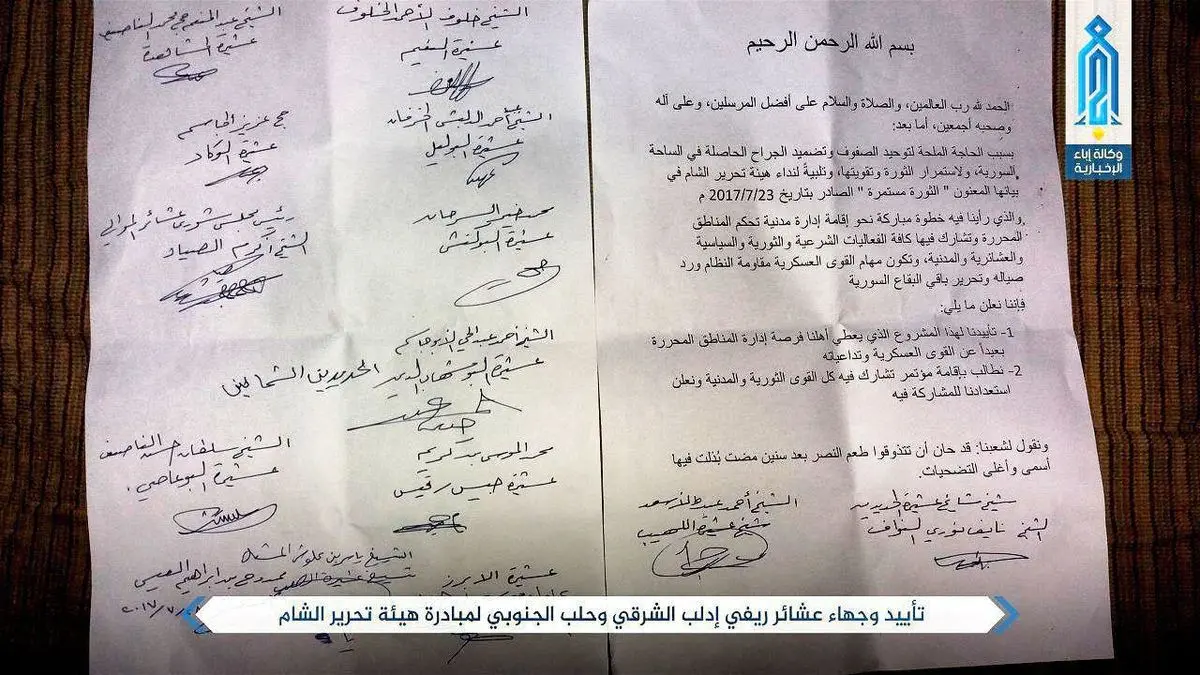 بسم الله الرحمن الرحيم
الحمد لله رب العالمين، والصلاة والسلام على أفضل المرسلين، وعلى آله
وصحبه أجمعين، أما بعد:
بسبب الحاجة الملحة لتوحيد الصفوف وتضميد الجراح الحاصلة في الساحة
السورية، ولاستمرار الثورة وتقويتها، وتلبيةً لنداء هيئة تحرير الشام في
بيانها المعنون " الثورة مستمرة " الصادر بتاريخ 2017/7/23 م
والذي رأينا فيه خطوة مباركة نحو إقامة إدارة مدنية تحكم المناطق
المحررة وتشارك فيها كافة الفعاليات الشرعية والثورية والسياسية
والعشائرية والمدنية، وتكون مهام القوى العسكرية مقاومة النظام ورد
صياله وتحرير باقي البقاع السورية
فإننا نعلن ما يلي:
1- تأييدنا لهذا المشروع الذي يعطي أهلنا فرصة إدارة المناطق المحررة
بعيداً عن القوى العسكرية وتداعياته
2- نطالب بإقامة مؤتمر تشارك فيه كل القوى الثورية والمدنية ونعلن
استعدادنا للمشاركة فيه
ونقول لشعبنا: قد حان أن تتذوقوا طعم النصر بعد سنين مضت بُذلت فيها
أسمى وأغلى التضحيات.
شيخ مشايخ عشيرة الحديدين
الشيخ نايف نوري النواف
الشيخ أحمد عبد الأسعد
شيخ عشيرة اللهيب
الشيخ خلوف الأحمد الخلوف
عشيرة النعيم
الشيخ أحمد
عشيرة البوليل
محمد خير السرحان
عشيرة
الشيخ أحمد عبد الحي
عشيرة الحديدين الشماليين
محمد الموسى بن كريم
عشيرة
عشيرة
الشيخ عبد المنعم حجي محمد الناصيف
عشيرة
حج عزيز الجاسم
عشيرة
رئيس مجلس شورى عشائر الموالي
الشيخ أكرم
الشيخ سلطان حسن الناصيف
عشيرة البوعاصي
الشيخ ياسين علوش المشعل
شيخ عشيرة
بن ابراهيم العيسى
وكالة إباء
الإخبارية
تأييد وجهاء عشائر ريفي إدلب الشرقي وحلب الجنوبي لمبادرة هيئة تحرير الشام